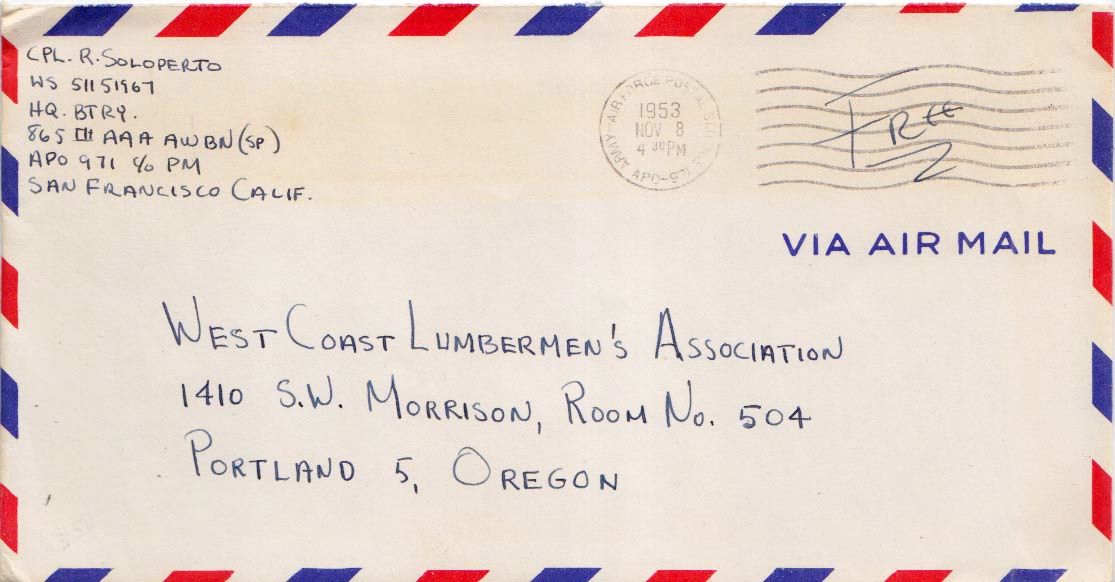 CPL. R. SOLOPERTO
WS 51151967
HQ. BTRY.
865TH AAA AWBN (SP)
APO 971 c/o PM
SAN FRANCISCO CALIF.
ARMY-AIR FORCE POSTAL
1953
NOV 8
4 30 PM
APO-971
FREE
VIA AIR MAIL
WEST COAST LUMBERMEN'S ASSOCIATION
1410 S.W. MORRISON, ROOM NO. 504
PORTLAND 5, OREGON